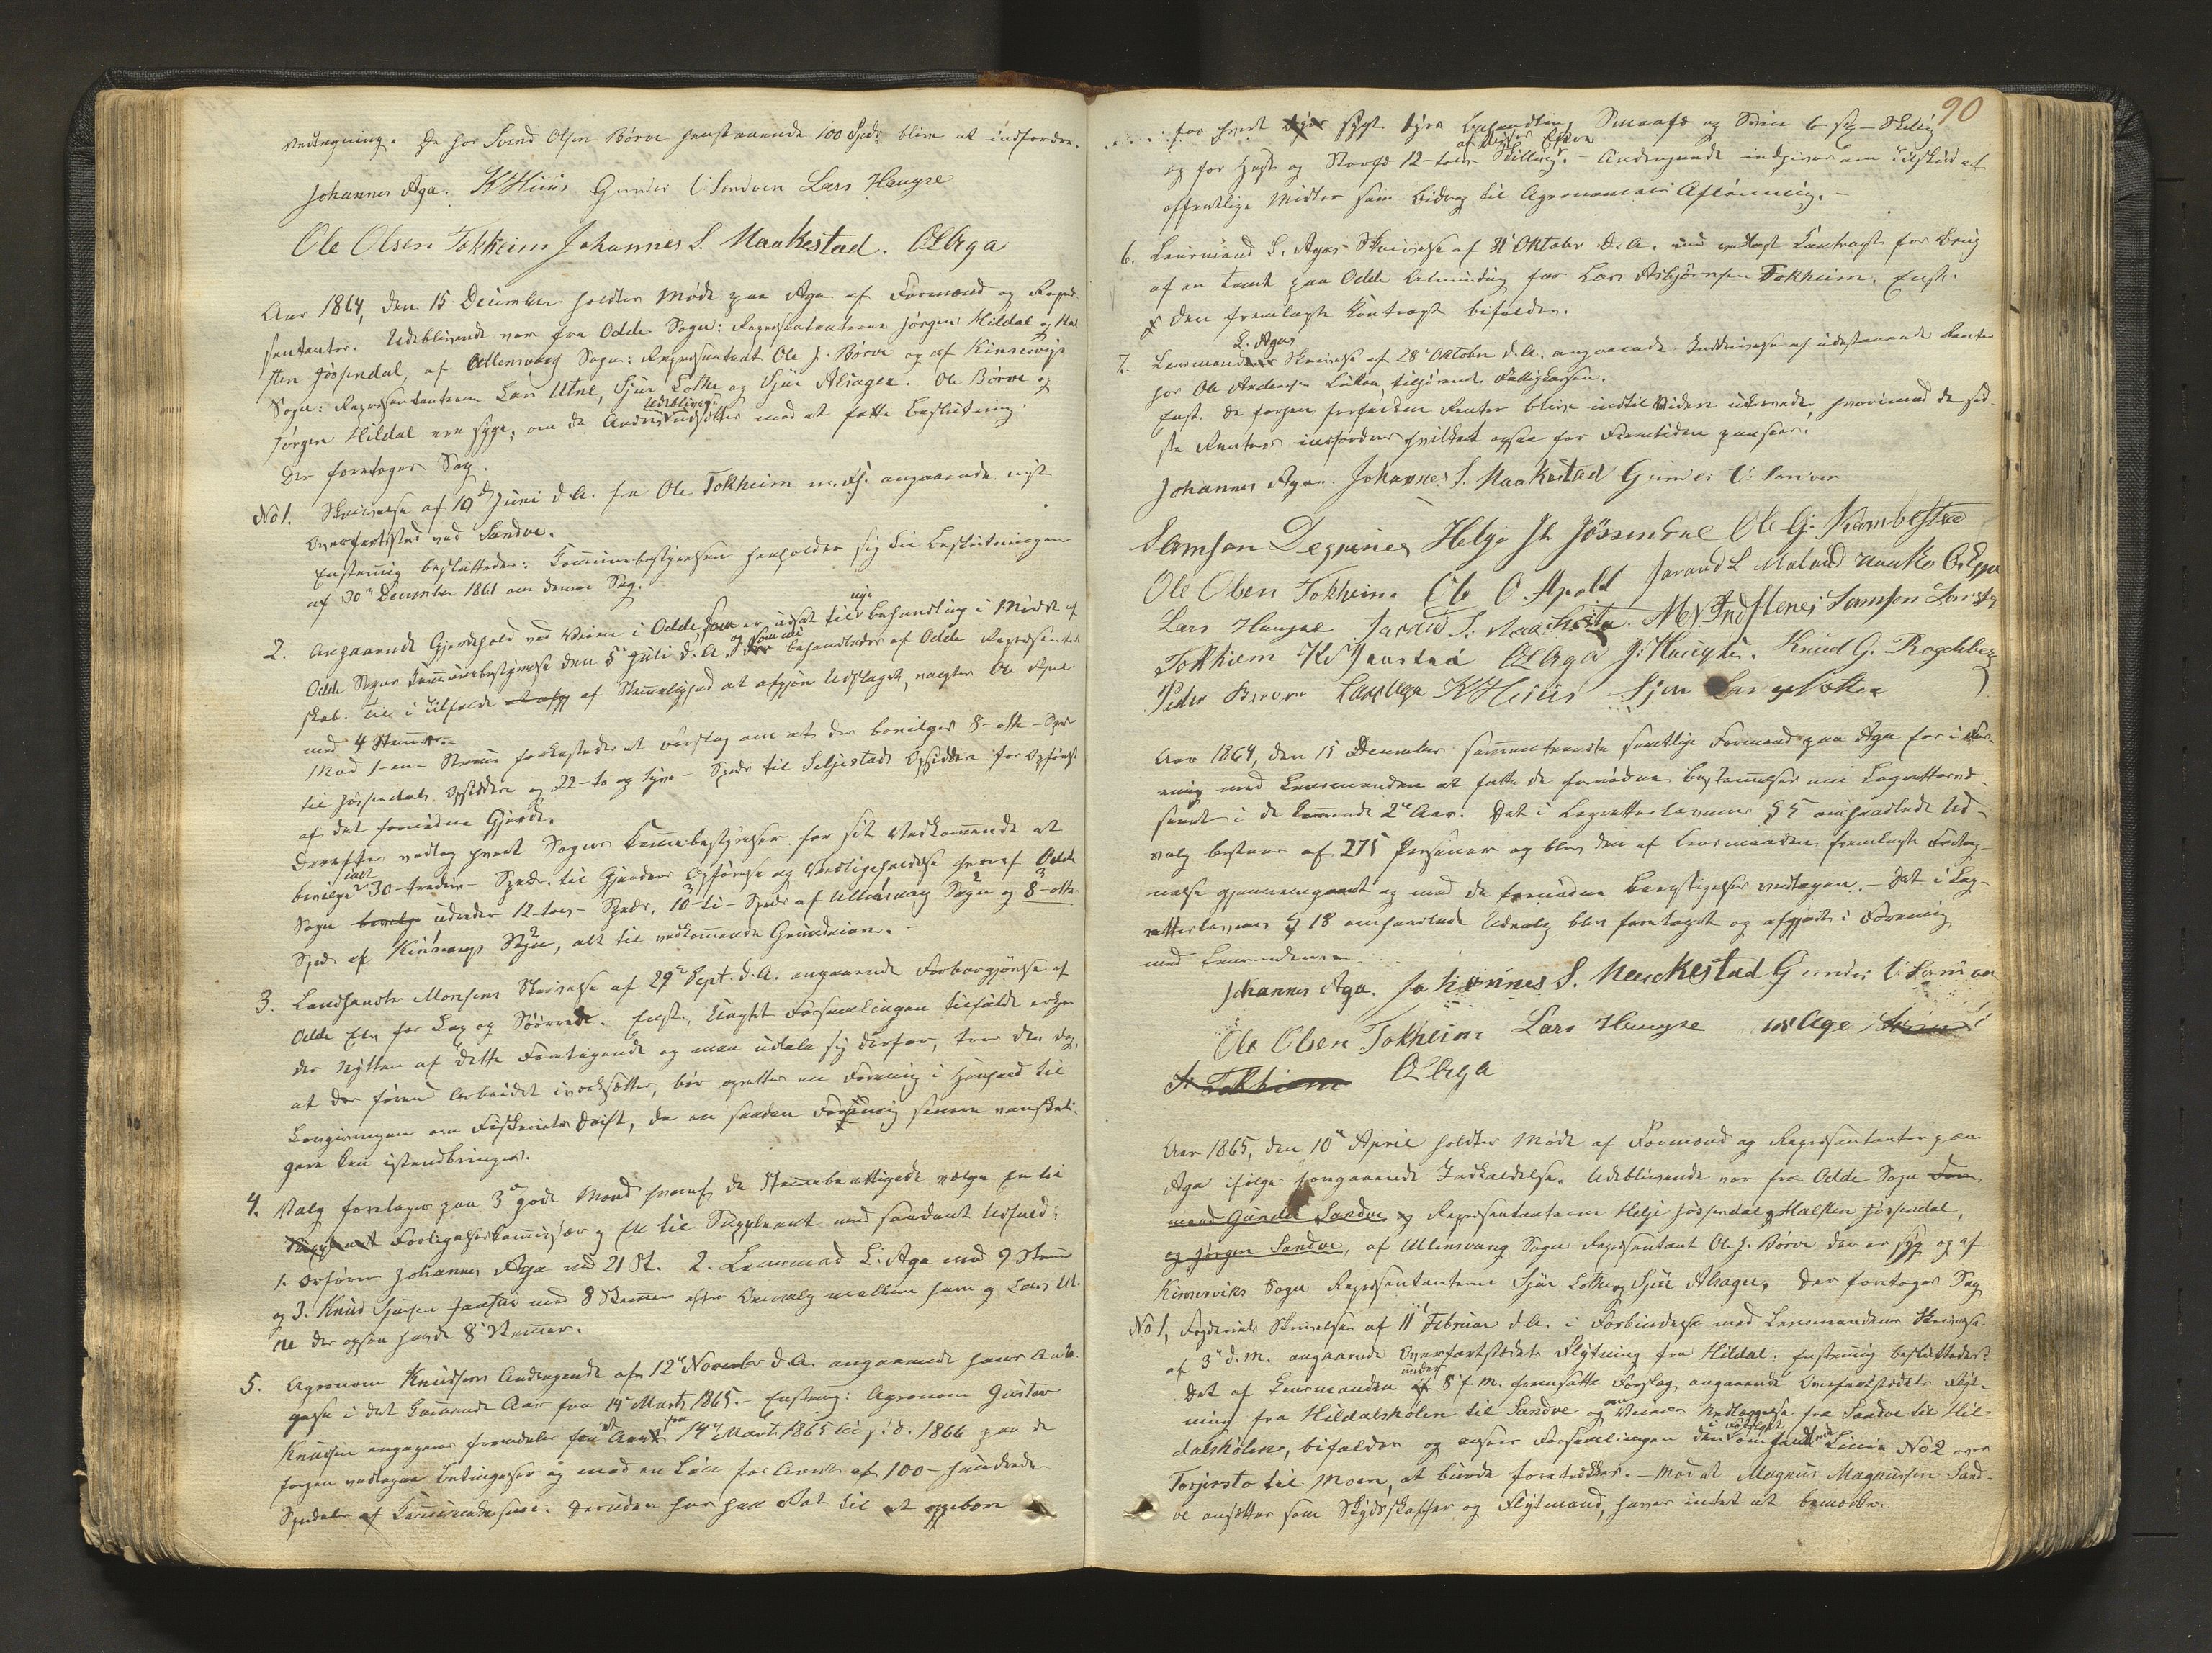 Vedtegning. De hos Svend Olsen Börve henstaaende 100 Spdr blive at indfordre.
Johannes Aga. K Huus Gunder Sandven Lars Haugse
Ole Olsen Tokheim Johannes S. Maakestad. O L Aga
Aar 1864, den 15 December holdtes Møde paa Aga af Formænd og Repræ-
sentanter. Udeblivende var fra Odde Sogn: Repræsentanterne Jörgen Hildal og Hal
sten Jösendal, af Ullensvang Sogn: Repræsentant Ole J. Börve og af Kinservigs
Sogn: Repræsentanterne Lars Utne, Sjur Lothe og Sjur Alsager. Ole Börve og
Jörgen Hildal ere syge, om de Andres Udeblivelse udsættes med at fatte Beslutning.
Der foretoges Sag.
No 1. Skrivelse af 19de Juni d.A. fra Ole Tokheim m. Fl. angaaende nyt
Overfartssted ved Sandve.
Enstemmig besluttedes: Kommunebestyrelsen henholder sig til Beslutningen
af 30te December 1861 om denne Sag.
2. Angaaende Gjerdehold ved Veien i Odde, som er udsat til nye Behandling i Møde af
Odde Sogns Kommunebestyrelse den 5te Juli d.A. og som nu behandledes af Odde Repræsentant
skab. til i Tilfælde af Stemmelighed at afgjøre Udslaget, valgtes Ole Aga
med 4 Stemmer.
Mod 1-en- Stemme forkastedes et Forslag om at der bevilges 8-otte-Spdr
til Jösendals Opsiddere og 22-to og tyve- Spdr til Seljestads Opsiddere for Opførsel
af det fornødne Gjerde.
Derefter vedtog hvert Sogns Kommunebestyrelse for sit Vedkommende at
bevilge ialt 30-tredive- Spdr. til Gjerders Opførelse og Vedligeholdelse hvoraf Odde
Sogn bevilge udreder 12-tolv- Spdr, 10-ti- Spdr af Ullensvang Sogn og 8-otte-
Spdr af Kinservigs Sogn, alt til vedkommende Grundeiere.
3. Landhandler Monsens Skrivelse af 29de Sept. d.A. angaaende Farbargjørelse af
Odde Elv for Lax og Søørret. Enst., Uagtet Forsamlingen tilfulde erkjen
der Nytten af dette Foretagende og man udtale sig derfor, tror den dog,
at der førend Arbeidet iværksættes, bør oprettes en Forening i Henhold til
Lovgivningen om Fiskeriets Drift, da en saadan Forening senere vanskeli-
gere kan istandbringes.
4. Valg foretoges paa 3de gode Mænd hvoraf de Stemmeberettigede vælge En til
Forligelseskommissær og En til Suppleant med saadant Udfald.
1. Ordfører Johannes Aga med 21 St. 2. Lensmand L. Aga med 9 Stemmer
og 3. Knud Sjursen Jaastad med 8 Stemmer efter Omvalg mellem ham og Lars Ut-
ne der ogsaa havde 8 Stemmer.
5. Agronom Knudsens Andragende af 12te November d.A. angaaende hans Anta-
gelse i det kommende Aar fra 14de Marts 1865. Enstemmig: Agronom Gustav
Knudsen engageres fremdeles for et Aar fra 14de Marts 1865 til s. d. 1866 paa de
forhen vedtagne Betingelser og med en Løn for Aaret af 100-hundrede
Spedaler af Kommunekassen. Desuden har han Ret til at oppebære
90
for hvert sygt Dyrs Behandling Smaafæ og Sviin 6-sex-Skilling
og for Hest og Storfæ 12-tolv Skilling af deres Eiere. - Andragende indgives om Tilskud af
offentlige Midler som Bidrag til Agronomens Aflønning.
6. Lensmand L. Agas Skrivelse af 31te Oktober d.A. med vedlagt Kontragt for Brug
af en Tomt paa Odde Almending for Lars Asbjørnsen Tokheim. Enst.
Den fremlagte Kontragt bifaldes.
7. Lensmand L. Agas Skrivelse af 28de Oktober d.A. angaaende Inddrivelse af udestaaende Renter
hos Ole Andersen Lutton tilhørende Fattigkassen.
Enst. De forhen forfaldne Renter blive indtil Videre udestaaende, hvorimod de sid-
ste Renter indfordres hvilket ogsaa for Fremtiden paasees.
Johannes Aga. Johannes S. Maakestad Gunder Sandven
Samson Degrenes Helge Jösendal Ole G. Kambestad
Ole Olsen Tokheim Ole O. Apold
Lars Haugse
Tokheim O L Aga Knud G.
Peder Börve Lars Aga K Huus Sjur
Aar 1864, den 15 December sammentraadte samtlige Formænd paa Aga for i For-
ening med Lensmanden at fatte de fornødne Bestemmelser om Lagrettesvæ-
senet i de kommende 2de Aar. Det i Lagretteslovens § 5 omhandlede Ud-
valg bestaar af 275 Personer og blev den af Lensmanden fremlagte Fortegn-
nelse gjennemgaaet og med de fornødne Berigtigelser vedtagen. - Det i Lag-
retteslovens § 18 omhandlede Udvalg blev foretaget og afgjort i Forening
med Lensmanden.
Johannes Aga. Johannes S. Maakestad Gunder Sandven
Ole Olsen Tokheim Lars Haugse Aga
Tokheim O L Aga
Aar 1865, den 10de April holdtes Møde af Formænd og Repræsentanter paa
Aga ifølge foregaaende Indkaldelse. Udeblivende var fra Odde Sogn For-
mand Gunder Sandve og Repræsentanterne Helje Jösendal og Halsten Jösendal,
og Jörgen Sandve, af Ullensvang Sogn Repræsentant Ole J. Börve der er syg og af
Kinserviks Sogn Repræsentanterne Sjur Lothe og Sjur Alsager. Der foretoges Sag
No 1, Fogderiets Skrivelse af 11te Februar d.A. i Forbindelse med Lensmandens Skrivelse
af 3de d.M. angaaende Overfartsstedets Flytning fra Hildal: Enstemmig besluttedes:
Det af Lensmanden under 8de f.M. fremsatte Forslag angaaende Overfartsstedets Flyt-
ning fra Hildalshölen til Sandve og om Veiens Nedlæggelse fra Sandve til Hil-
dalshölen, bifaldes og anser Forsamlingen den i Forslaget omhandlede Linie No 2 over
Torjersto til Moen, at burde foretrækkes. - Mod at Magnus Magnussen Sand-
ve ansættes som Skydsskaffer og Flytmand, haves intet at bemærke.